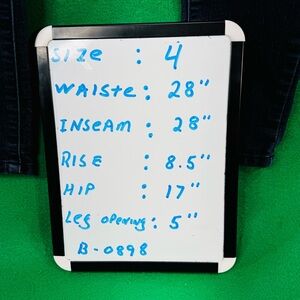 Size : 4
WAISte : 28"
INSEAM : 28"
RISE : 8.5"
HIP : 17"
Leg opening : 5"
B-0898